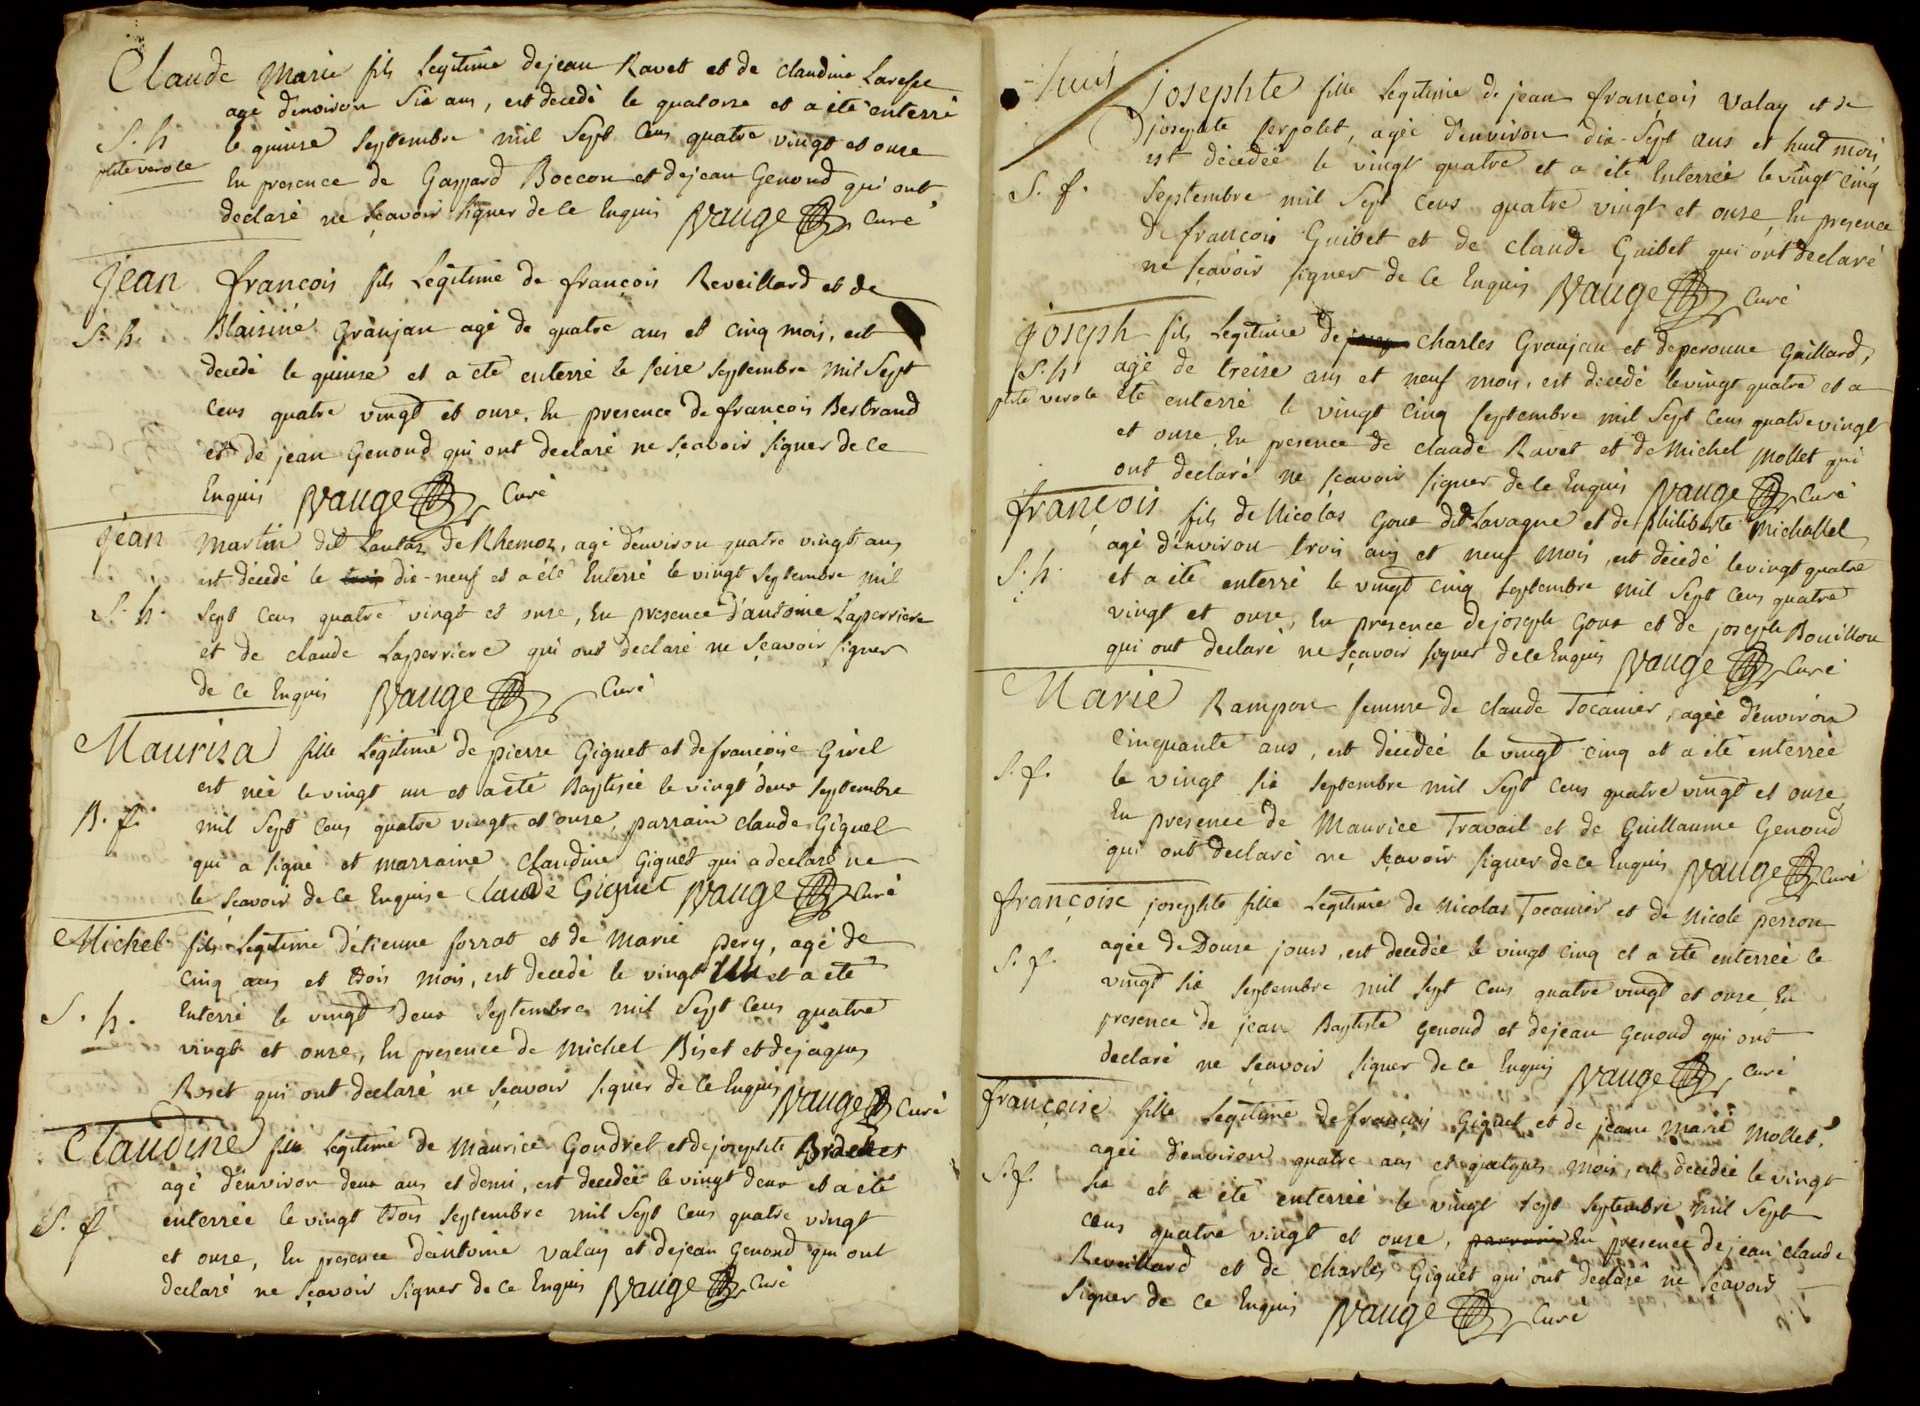 Claude Marie fils Legitime de jean Ravet et de claudine
agé d'environ Six ans, est decedé le quatorze et a été enterré
S. h. le quinze Septembre mil Sept Cens quatre vingt et onze
ptite verole En presence de Gaspard Boccon et de jean Genond qui ont
declaré ne sçavoir signer de Ce Enquis Vauge Curé
jean francois fils Legitime de françois Reveillard et de
S. h. Blaisine Granjan agé de quatre ans et Cinq mois, est
decedé le quinze et a eté enterré le seize Septembre mil Sept
Cens quatre vingt et onze, En presence de francois Bertrand
et de jean Genond qui ont declaré ne sçavoir signer de Ce
Enquis Vauge Curé
jean Martin dit Lautaz de Rhemoz, agé d'environ quatre vingt ans
est décedé le dix-neuf et a été Enterré le vingt Septembre mil
S. h. Sept Cens quatre vingt et onze, En presence d'antoine Laperriere
et de claude Laperriere qui ont declaré ne sçavoir signer
de Ce Enquis Vauge Curé
Mauriza fille Légitime de pierre Giguet et de françoise Givel
est née le vingt un et a eté Baptisée le vingt deux Septembre
B. f. mil Sept Cens quatre vingt et onze, parrain claude Giguet
qui a signé et marraine Claudine Giguet qui a declaré ne
le sçavoir de Ce Enquise Claude Giguet Vauge Curé
Michel fils Legitime d'étienne forrat et de Marie pery, agé de
cinq ans et trois mois, est decedé le vingt un et a eté
S. h. Enterré le vingt deux Septembre mil Sept Cens quatre
vingt et onze, En presence de Michel Biset et de jaques
Roset qui ont declaré ne sçavoir signer de Ce Enquis Vauge Curé
Claudine fille Legitime de Maurice Gondret et de josephte Brachet
agé d'environ deux ans et demi, est decedée le vingt deux et a été
S. f. enterrée le vingt trois Septembre mil Sept Cens quatre vingt
et onze, En presence d'antoine valay et de jean Genond qui ont
declaré ne sçavoir signer de Ce Enquis Vauge Curé
josephte fille Legitime de jean françois valay et de
josephte perpolet, agée d'environ dix-Sept ans et huit mois,
est décedée le vingt quatre et a été Enterrée le vingt Cinq
S. f. Septembre mil Sept Cens quatre vingt et onze, En presence
de françois Guibet et de claude Guibet qui ont declaré
ne sçavoir signer de Ce Enquis Vauge Curé
joseph fils Legitime de Charles Granjan et de peronne Gaillard,
S. h. agé de treize ans et neuf mois, est decedé le vingt quatre et a
ptite verole été enterré le vingt Cinq Septembre mil Sept Cens quatre vingt
et onze, En presence de claude Ravet et de Michel Mollet qui
ont declaré ne sçavoir signer de Ce Enquis Vauge Curé
françois fils de Nicolas Goux dit Lavague et de philiberte Michallet
agé d'environ trois ans et neuf Mois, est décedé le vingt quatre
S. h. et a été enterré le vingt cinq Septembre mil Sept Cens quatre
vingt et onze, En presence de joseph Goux et de joseph Bouillon
qui ont declaré ne sçavoir signer de Ce Enquis Vauge Curé
Marie Rampon femme de claude Tocanier, agée d'environ
Cinquante ans, est décedée le vingt cinq et a été enterrée
S. f. le vingt six Septembre mil Sept Cens quatre vingt et onze
En presence de Maurice Travail et de Guillaume Genoud
qui ont declaré ne sçavoir signer de Ce Enquis Vauge Curé
françoise josephte fille Legitime de Nicolas Tocanier et de Nicole perron
agée de Douze jours, est decedée le vingt cinq et a été enterrée le
S. f. vingt six Septembre mil Sept Cens quatre vingt et onze, En
presence de jean Baptiste Genoud et de jean Genoud qui ont
declaré ne sçavoir signer de Ce Enquis Vauge Curé
françoise fille Legitime de françois Giguet et de jeane Marie Mollet,
agée d'environ quatre ans et quelques mois, est decedée le vingt
S. f. six et a été enterrée le vingt sept Septembre mil Sept
Cens quatre vingt et onze, En presence de jean claude
Reveillard et de Charles Giguet qui ont declaré ne sçavoir
signer de Ce Enquis Vauge Curé